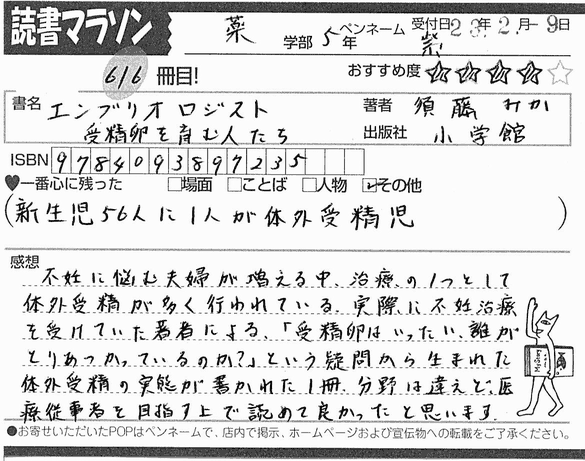 読書マラソン
薬 学部 5年 ペンネーム 紫 受付日 23年2月9日
616 冊目!
おすすめ度 ★★★★☆
書名 エンブリオロジスト 著者 須藤みか
受精卵を育む人たち 出版社 小学館
ISBN 9784093897235
♥一番心に残った □場面 □ことば □人物 ☑その他
(新生児56人に1人が体外受精児)
感想
不妊に悩む夫婦が増える中、治療の1つとして
体外受精が多く行われている。実際に不妊治療
を受けていた著者による、「受精卵はいったい、誰が
とりあつかっているのか?」という疑問から生まれた
体外受精の実態が書かれた1冊。分野は違えど、医
療従事者を目指す上で読めて良かったと思います。
●お寄せいただいたPOPはペンネームで、店内で掲示、ホームページおよび宣伝物への転載をご了承ください。